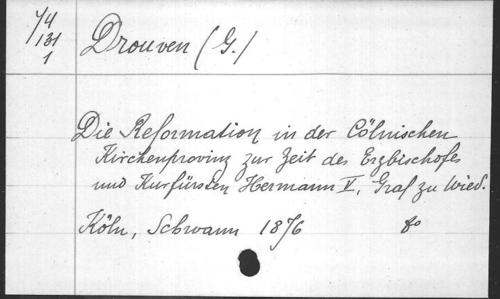 Y4
131
1
Drouven (G.)
Die Reformation in der Cölnischen
Kirchenprovinz zur Zeit des Erzbischofes
und Kurfürsten Hermann V, Graf zu Wied.
Köln, Schwann 1876 8o